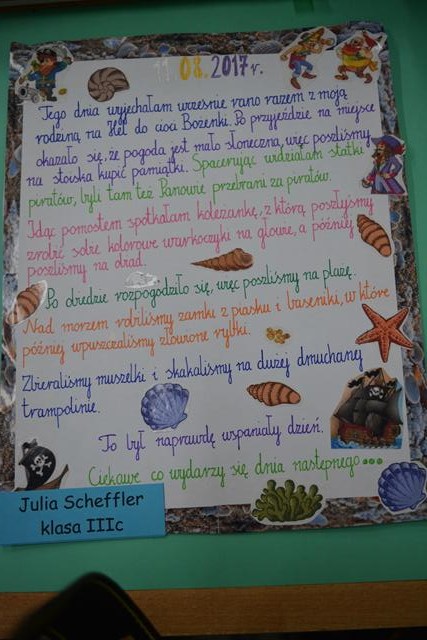 11.08.2017r.
Tego dnia wyjechałam wcześnie rano razem z moją
rodziną na Hel do cioci Bożenki. Po przyjeździe na miejsce
okazało się, że pogoda jest mało słoneczna, więc poszliśmy
na stoiska kupić pamiątki. Spacerując widziałam statki
piratów, byli tam też Panowie przebrani za piratów.
Idąc pomostem spotkałam koleżankę, z którą poszłyśmy
zrobić sobie kolorowe warkoczyki na głowie, a później
poszliśmy na obiad.
Po obiedzie rozpogodziło się, więc poszliśmy na plażę.
Nad morzem robiliśmy zamki z piasku i baseniki, w które
później wpuszczaliśmy złowione rybki.
Zbieraliśmy muszelki i skakaliśmy na dużej dmuchanej
trampolinie.
To był naprawdę wspaniały dzień.
Ciekawe co wydarzy się dnia następnego...
Julia Scheffler
klasa IIIc